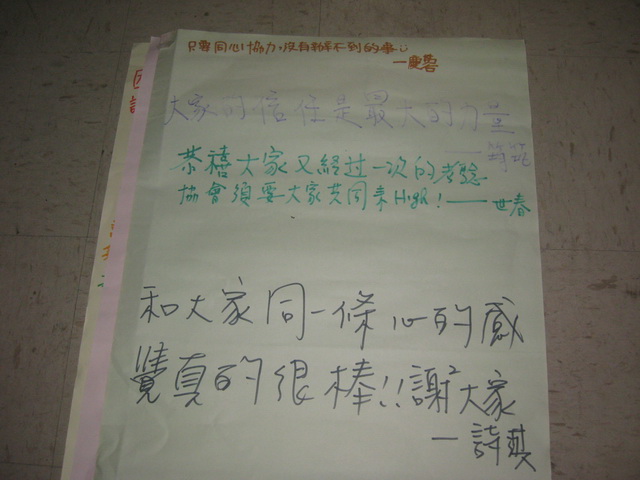 只要同心協力,沒有辦不到的事
大家的信任是最大的力量
恭禧大家又経过一次的考驗
協會須要大家共同來High!——世春
和大家同一條心的感
覺真的很棒!!謝大家
—詩琪